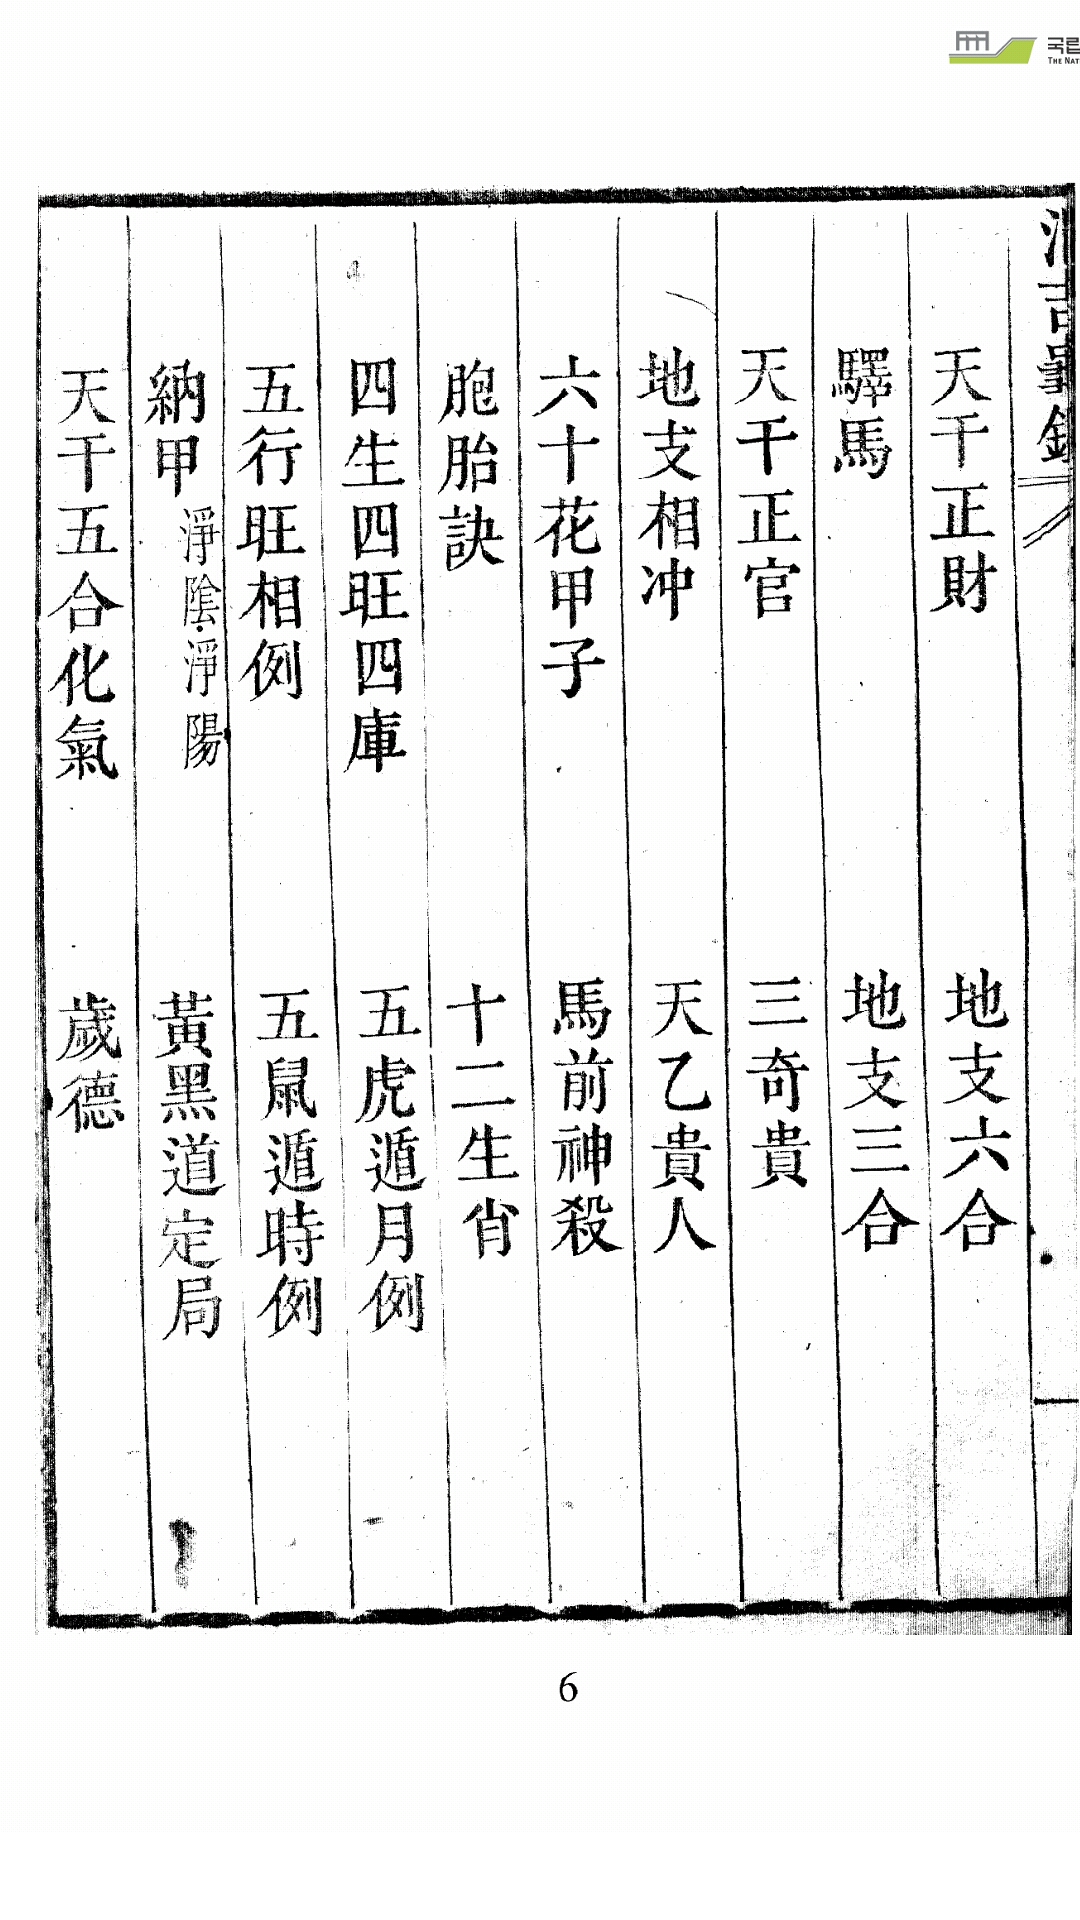 국립
THE NAT
天干正財 地支六合
驛馬 地支三合
天干正官 三奇貴
地支相冲 天乙貴人
六十花甲子 馬前神殺
胞胎訣 十二生肖
四生四旺四庫 五虎遁月例
五行旺相例 五鼠遁時例
納甲 淨陰淨陽 黃黑道定局
天干五合化氣 歲德
6